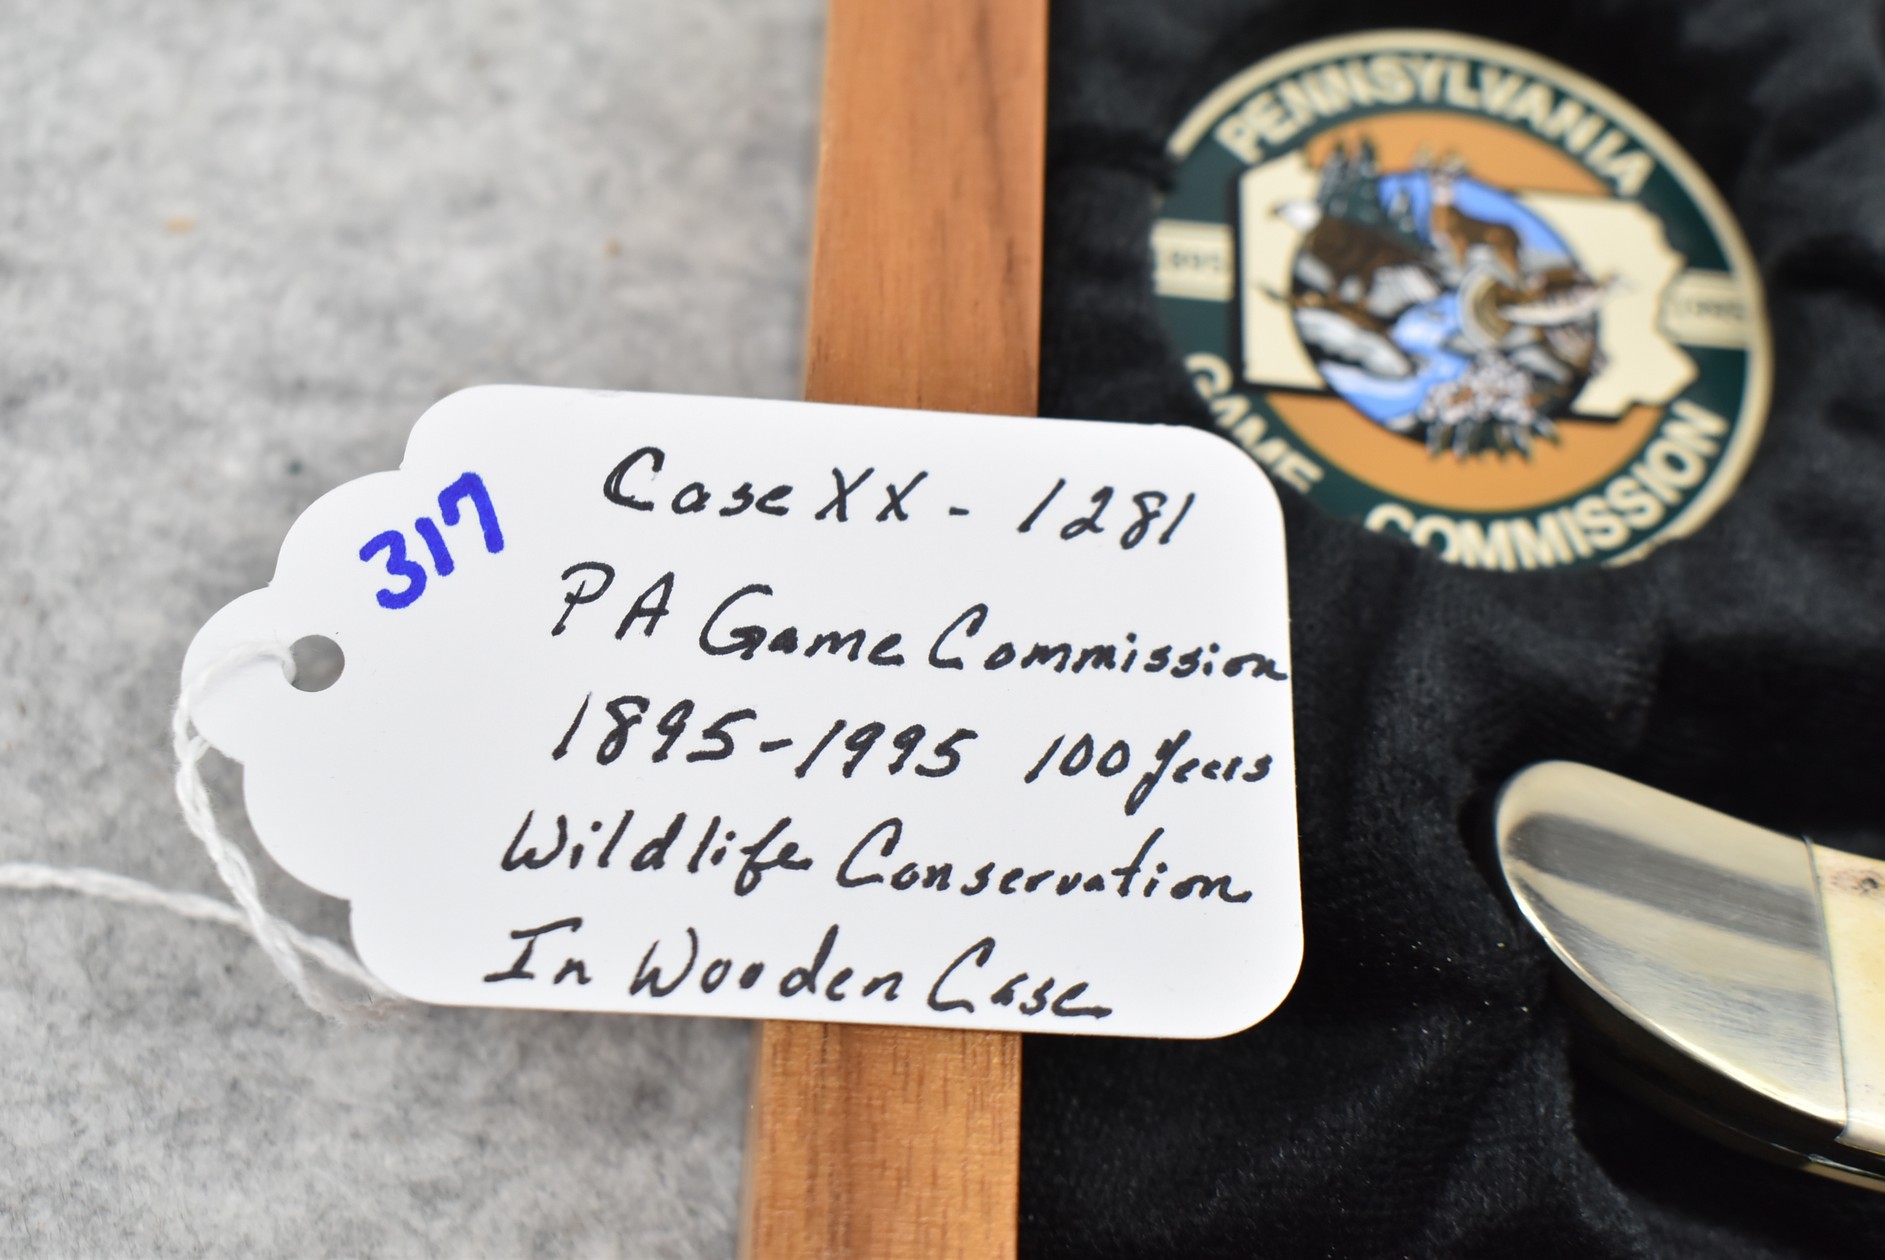 317
Case XX - 1281
PA Game Commission
1895-1995 100 Years
Wildlife Conservation
In Wooden Case
PENNSYLVANIA
1895
1995
GAME COMMISSION